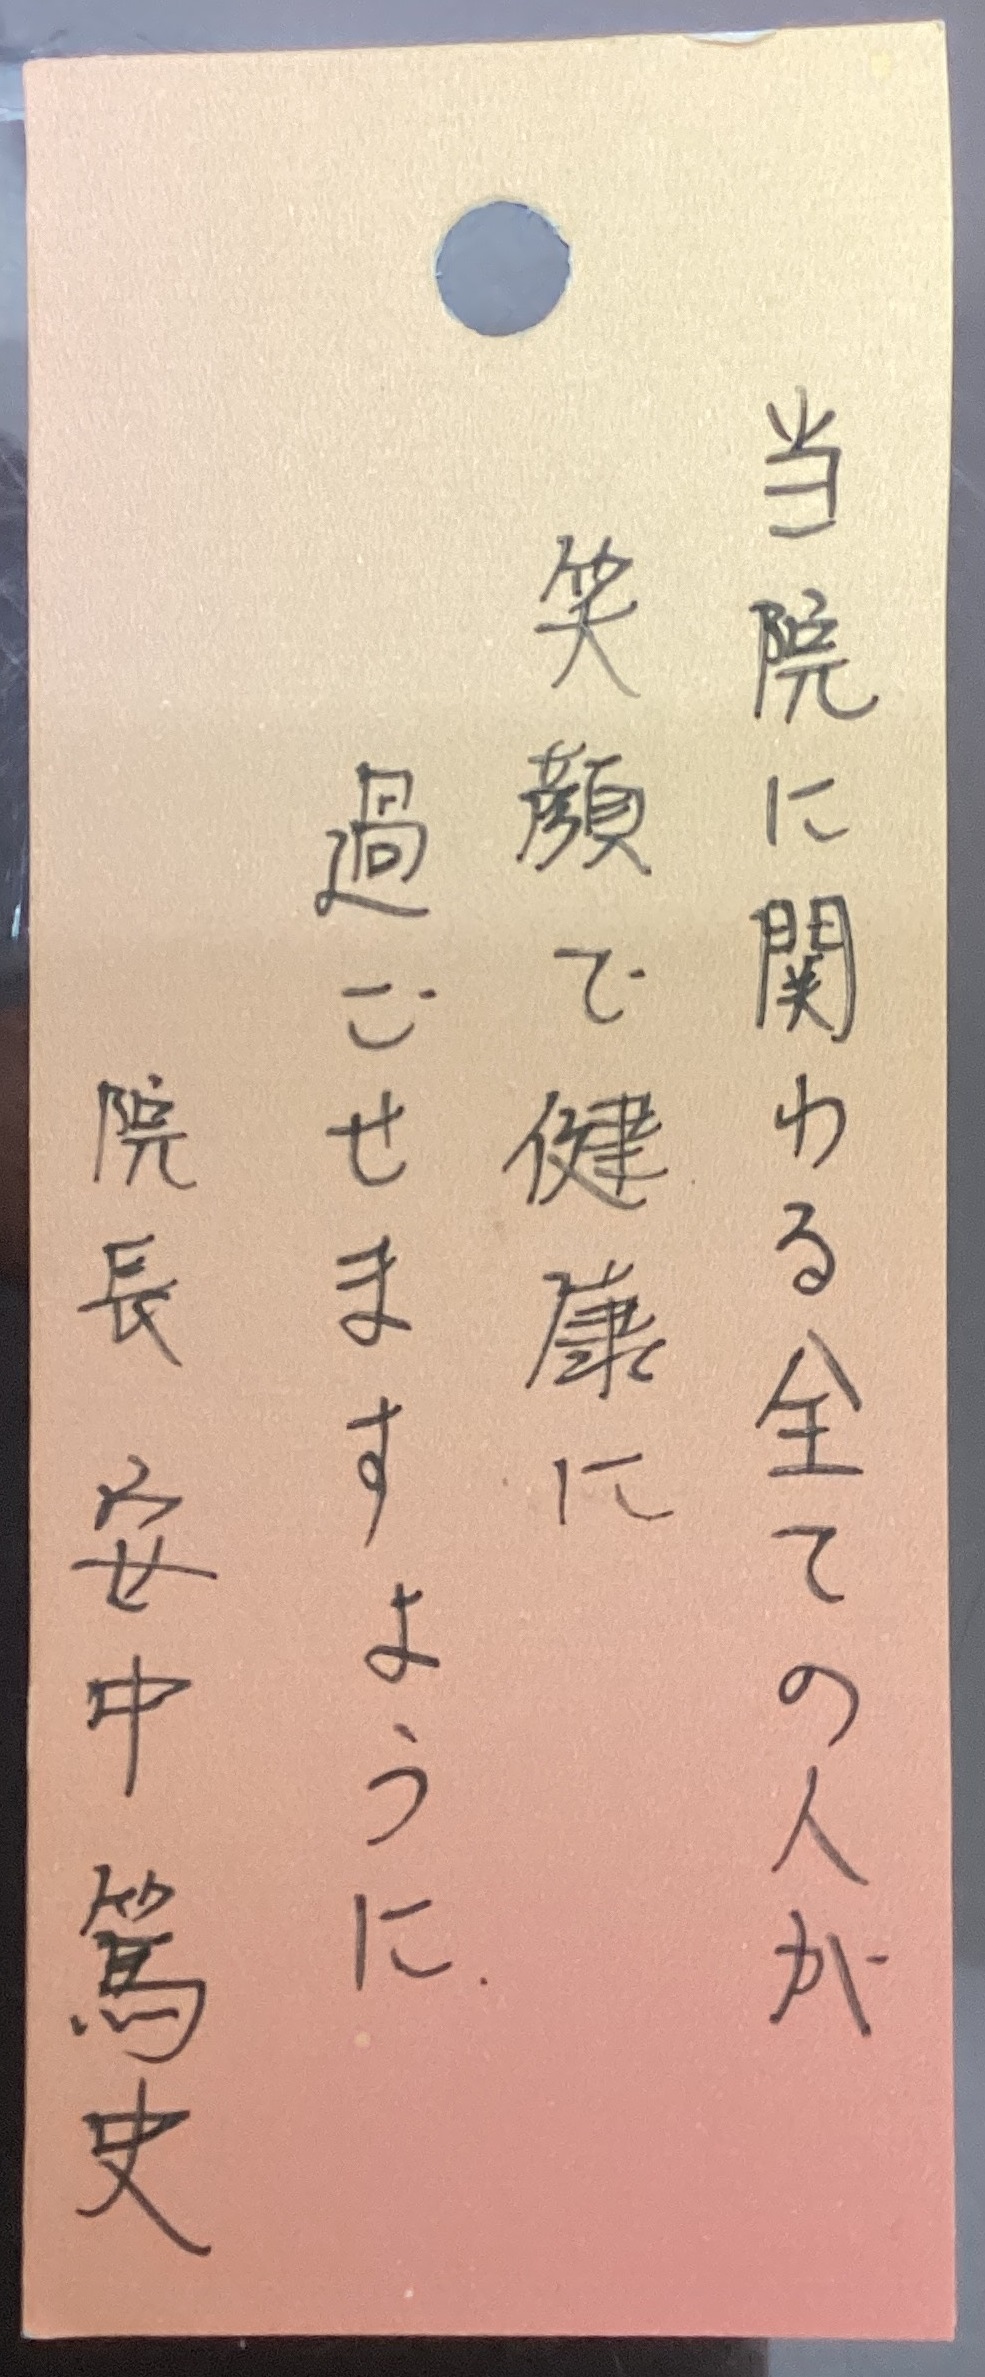 当院に関わる全ての人が
笑顔で健康に
過ごせますように.
院長 安中篤史